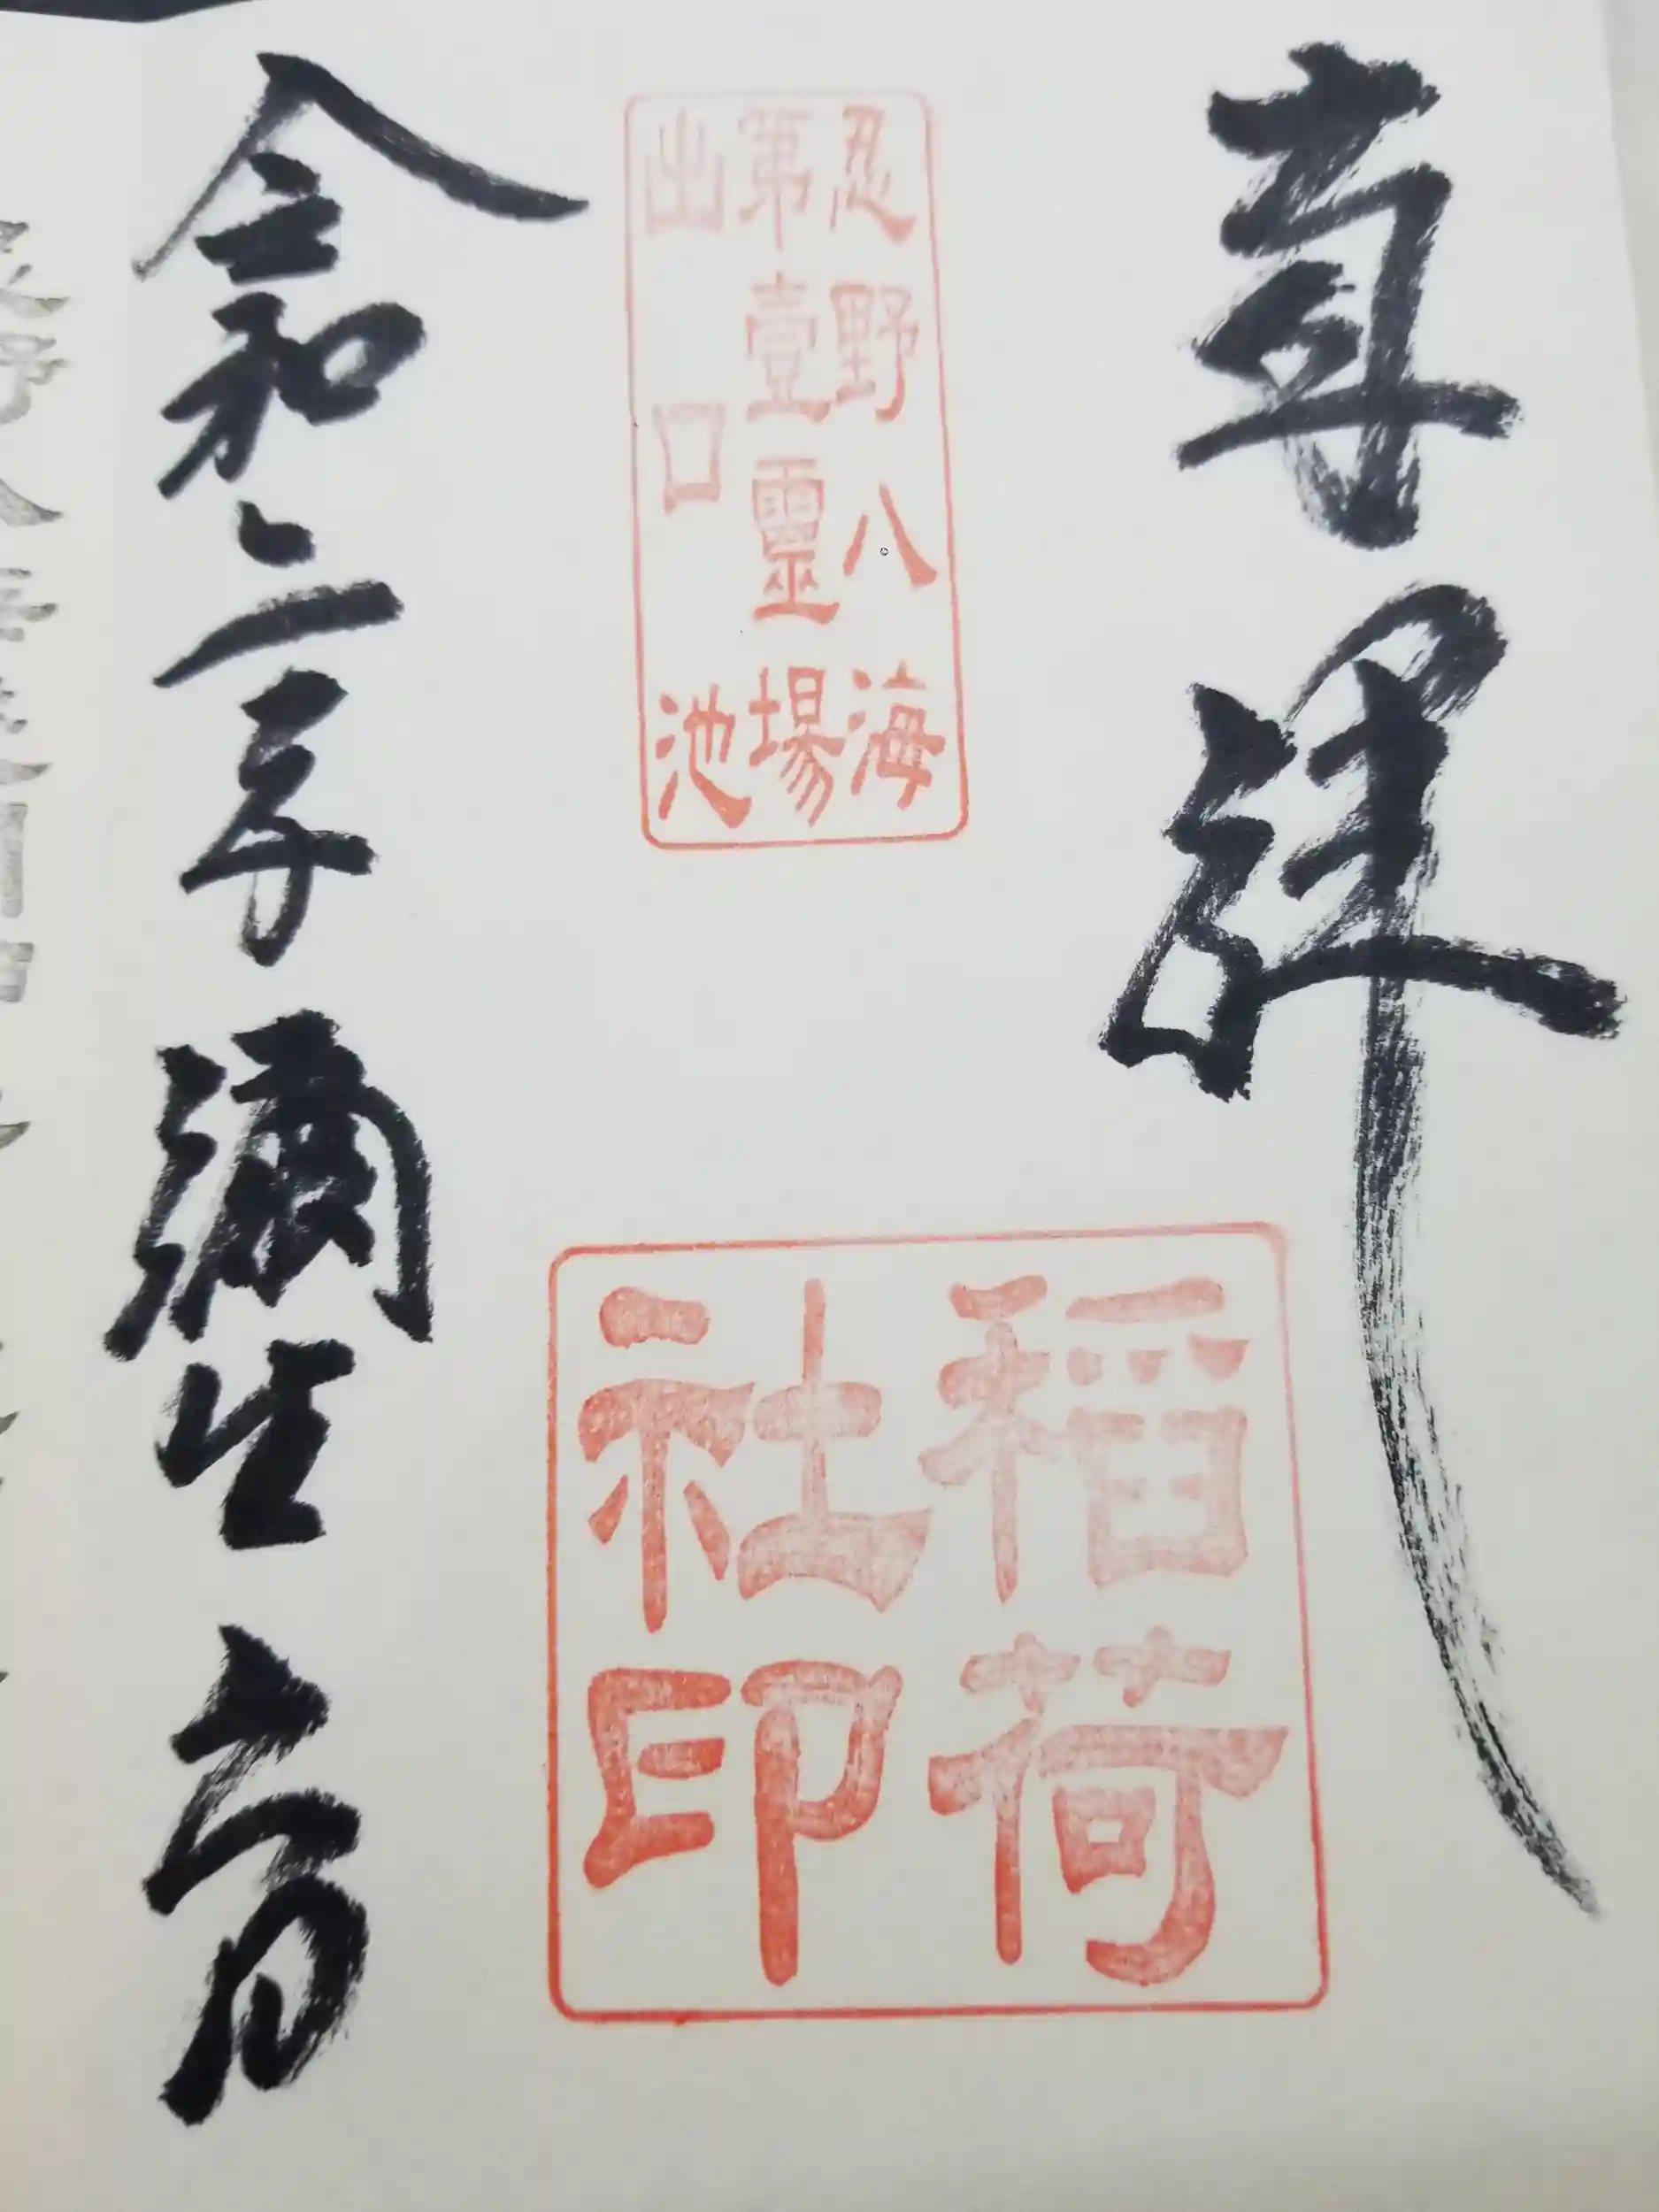 奉拝
忍野八海
第壹靈場
出口池
稲荷
社印
令和二年 彌生